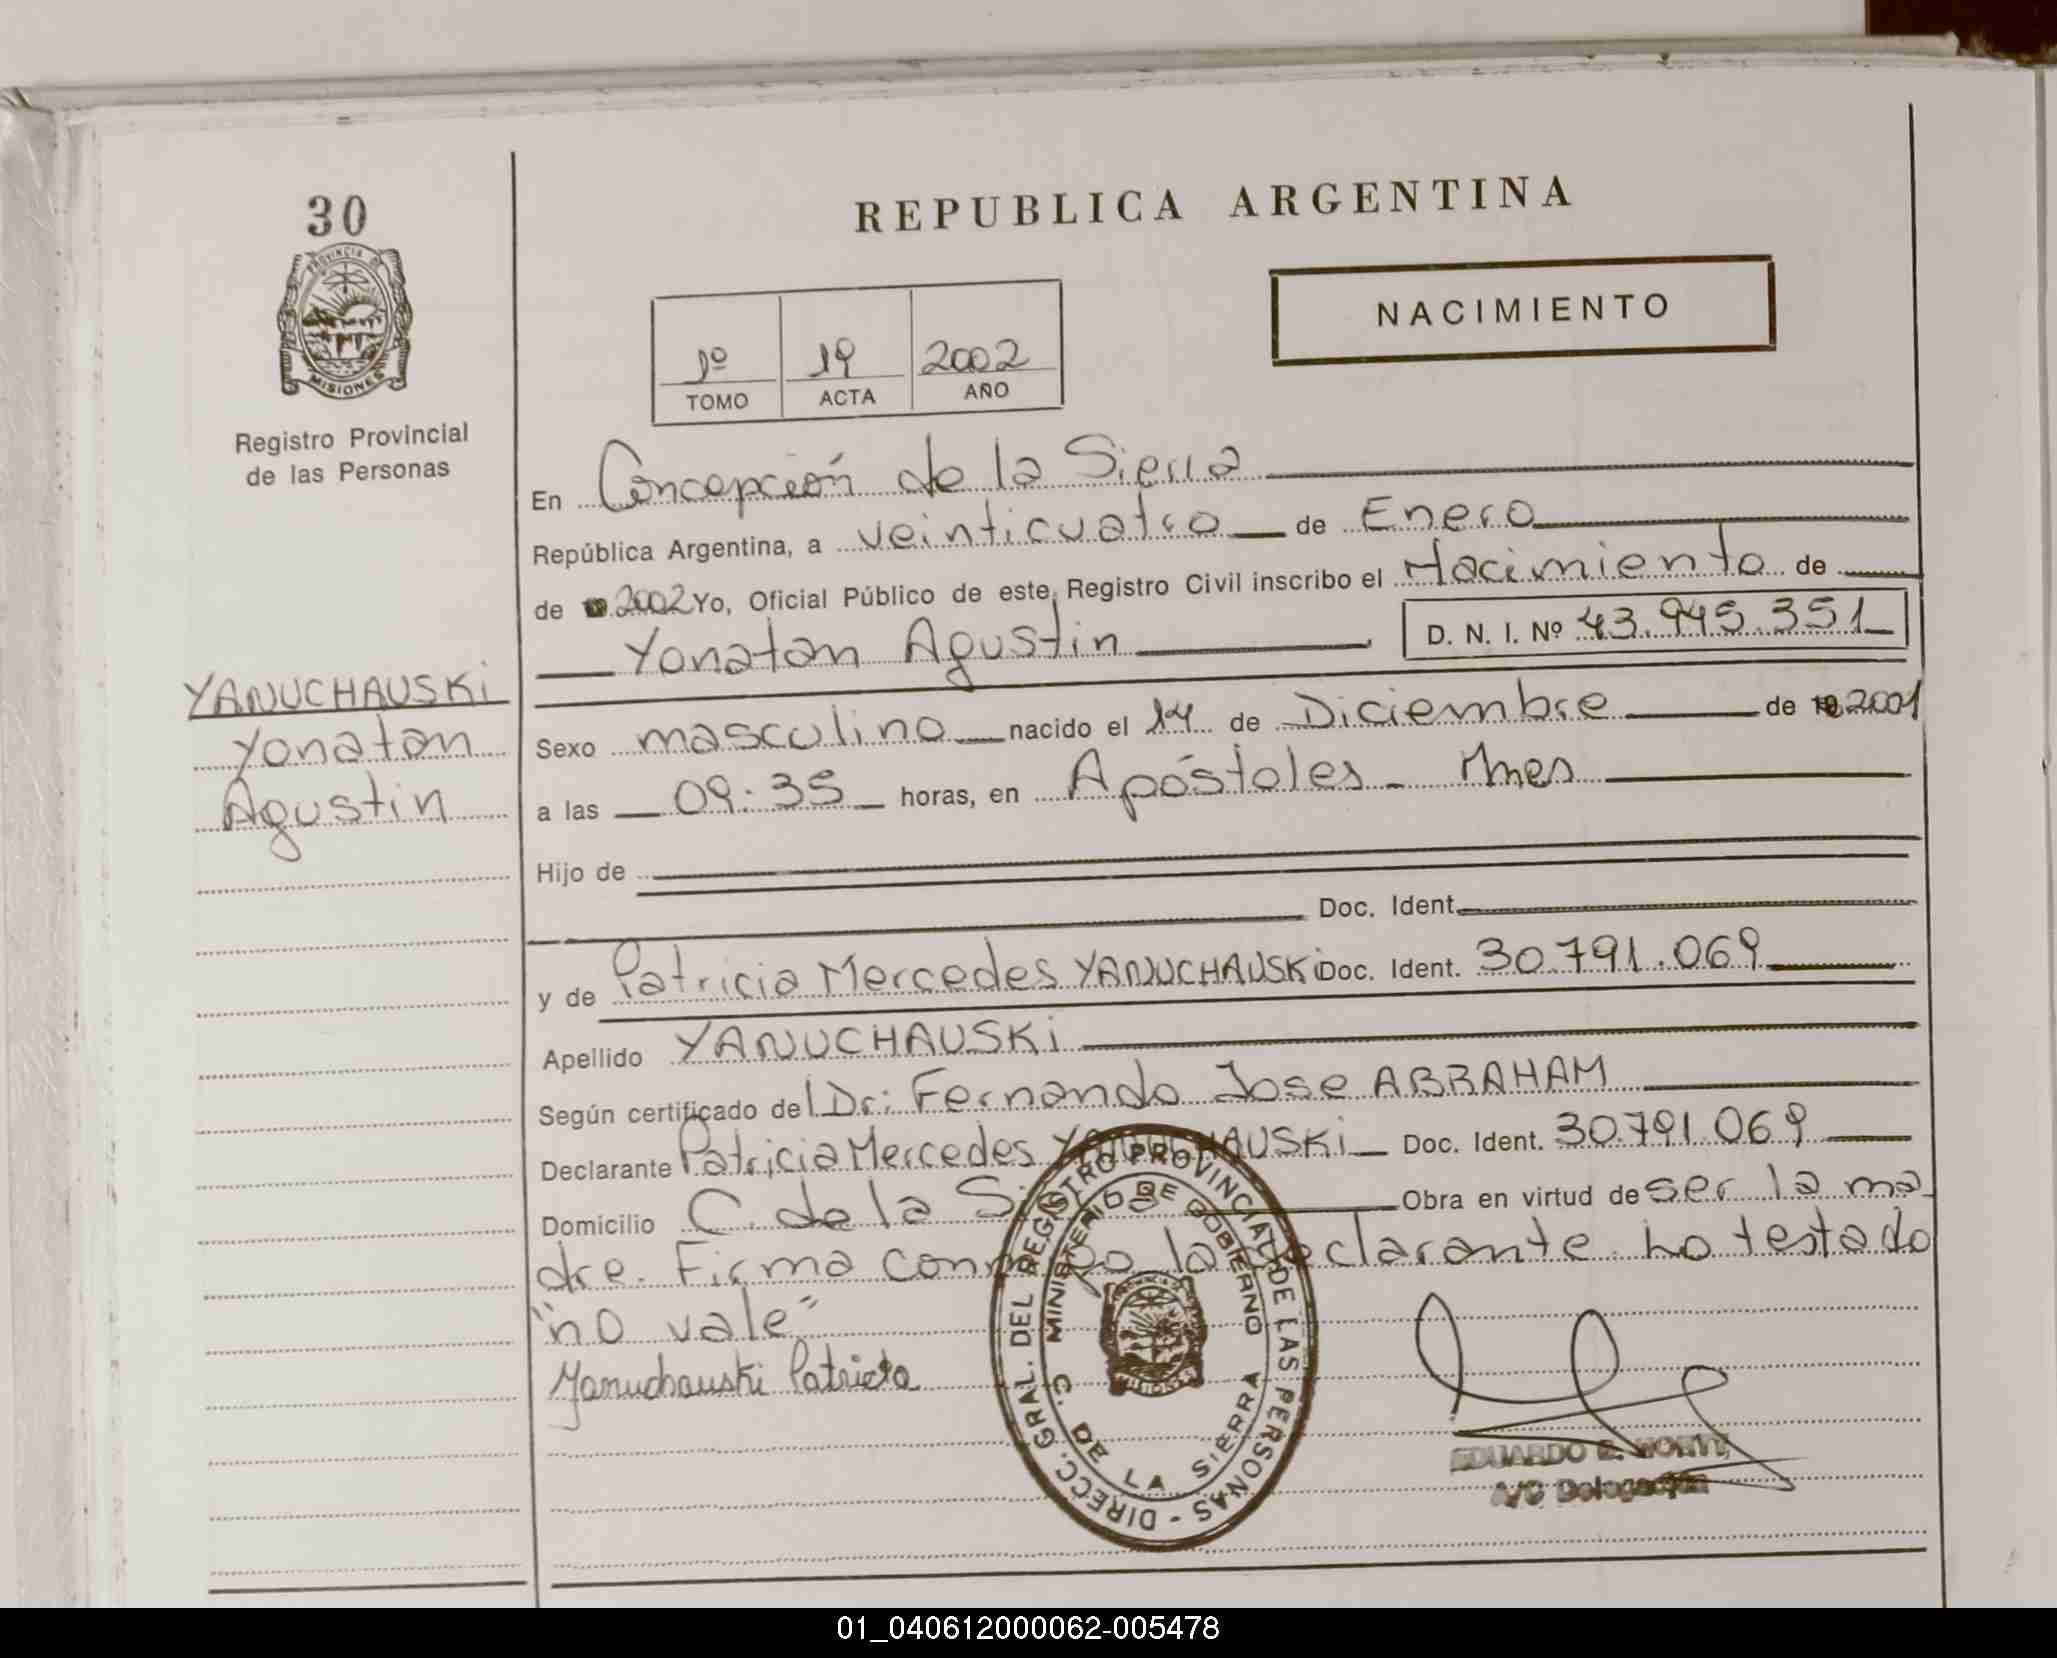 30
PROVINCIA DE
MISIONES
Registro Provincial
de las Personas
REPUBLICA ARGENTINA
NACIMIENTO
1º 19 2002
TOMO ACTA AÑO
En Concepción de la Sierra
República Argentina, a veinticuatro de Enero
de 2002 Yo, Oficial Público de este Registro Civil inscribo el Nacimiento de
Yonatan Agustin D. N. I. Nº 43.945.351
YANUCHAUSKi
Yonatan
Agustin
Sexo masculino nacido el 14 de Diciembre de 2001
a las 09:35 horas, en Apóstoles - Mnes
Hijo de
Doc. Ident.
y de Patricia Mercedes YANUCHAUSKi Doc. Ident. 30.791.069
Apellido YANUCHAUSKi
Según certificado del Dr: Fernando Jose ABRAHAM
Declarante Patricia Mercedes YANUCHAUSKi Doc. Ident. 30.791.069
Domicilio C. de la Obra en virtud de ser la ma
dre. Firma la declarante. Lo testado
"no vale"
Yanuchauski Patricia
DIRECC. GRAL. DEL REGISTRO PROVINCIAL DE LAS PERSONAS -
MINISTERIO DE GOBIERNO
C. DE LA SIERRA
MISIONES
EDUARDO E.
A/C Delegación
01_040612000062-005478